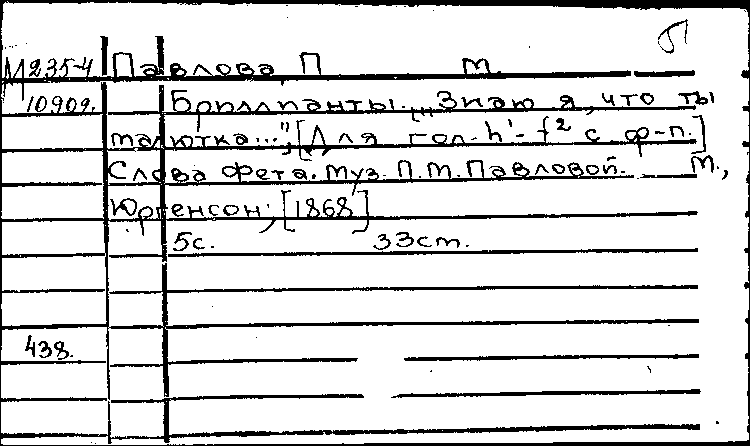 М235-4 Павлова, П. М.
10909. Бриллианты. „Знаю я, что ты
малютка...", [Для гол. h'-f² с ф-п.]
Слова Фета. Муз. П.М. Павловой. М.,
Юргенсон, [1868]
5с. 33ст.
438.